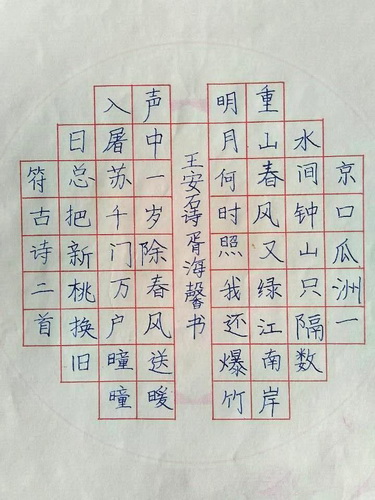 京口瓜洲一
水间钟山只隔数
重山春风又绿江南岸
明月何时照我还爆竹
王安石诗胥海馨书
声中一岁除春风送暖
入屠苏千门万户曈曈
日总把新桃换旧
符古诗二首